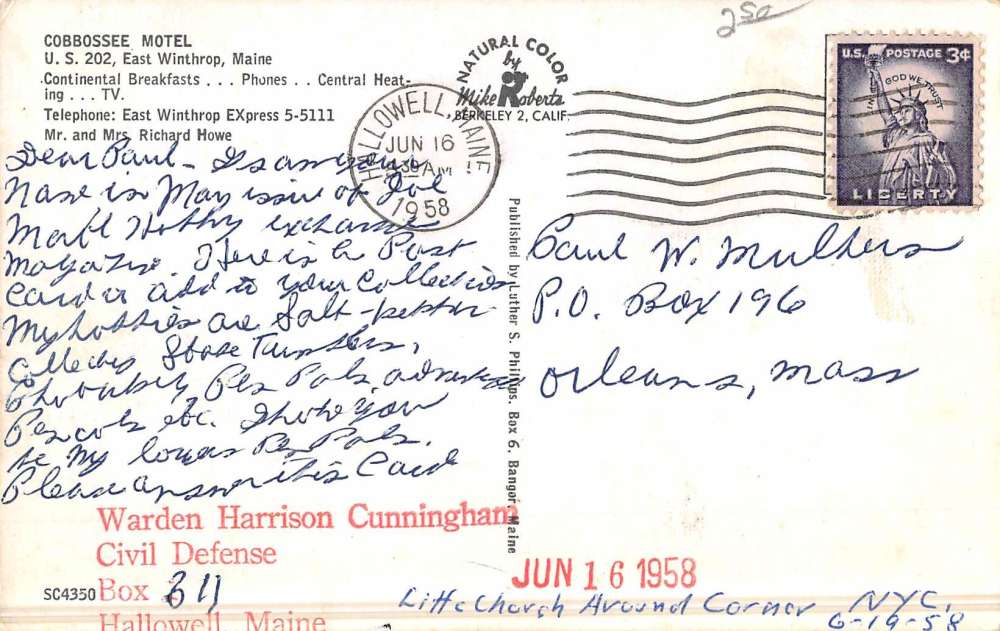 COBBOSSEE MOTEL
U. S. 202, East Winthrop, Maine
Continental Breakfasts . . . Phones . . Central Heat-
ing . . . TV.
Telephone: East Winthrop EXpress 5-5111
Mr. and Mrs. Richard Howe
NATURAL COLOR
by
Mike Roberts
BERKELEY 2, CALIF.
250
HALLOWELL, MAINE.
JUN 16
AM
1958
U.S. POSTAGE 3¢
IN GOD WE TRUST
LIBERTY
Dear Paul - I saw your
Name in May issue of
Hobby exchange
Magazine. Here is a Post
Card to add to your Collection
My hobbies are Salt - pepper
State Tumblers,
Pen Pals, advertised
Pencils etc. I hope you
be my Pen Pals.
Please answer this Card
Published by Luther S. Phillips. Box 6, Bangor, Maine
Paul W. Mulhers
P.O. Box 196
Orleans, Mass
Warden Harrison Cunningham
Civil Defense
SC4350 Box 311
Hallowell, Maine
JUN 16 1958
Little Church Around Corner NYC.
6-19-58